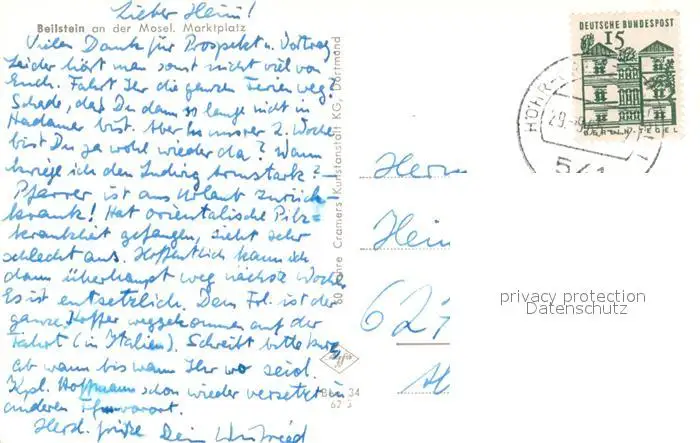 Lieber Heini!
Beilstein an der Mosel. Marktplatz
Vielen Dank für Prospekt u. Vortrag
Leider hört man sonst nicht viel von
Euch. Fahrt Ihr die ganzen Ferien weg?
Schade, daß Du dann so lange nicht in
Hadamar bist. Aber in unsrer 2. Woche
bist Du ja wohl wieder da? Wann
kriege ich den Ludwig Armstark?
Pfarrer ist aus Urlaub zurück-
krank! Hat orientalische Pilz=
krankheit gefangen, sieht sehr
schlecht aus. Hoffentlich kann ich
dann überhaupt weg nächste Woche.
Es ist entsetzlich. Dem Frl. ist der
ganze Koffer weggekommen auf der
Fahrt (in Italien). Schreibt bitte
ab wann bis wann Ihr wo seid.
Kpl. Hoffmann schon wieder versetzt in
anderen
Herzl. Grüße Dein Winfried
60 Jahre Cramers Kunstanstalt KG, Dortmund
34
62 3
DEUTSCHE BUNDESPOST
15
BERLIN-TEGEL
HÖHR
29.
541
Herrn
Hein
627
privacy protection
Datenschutz